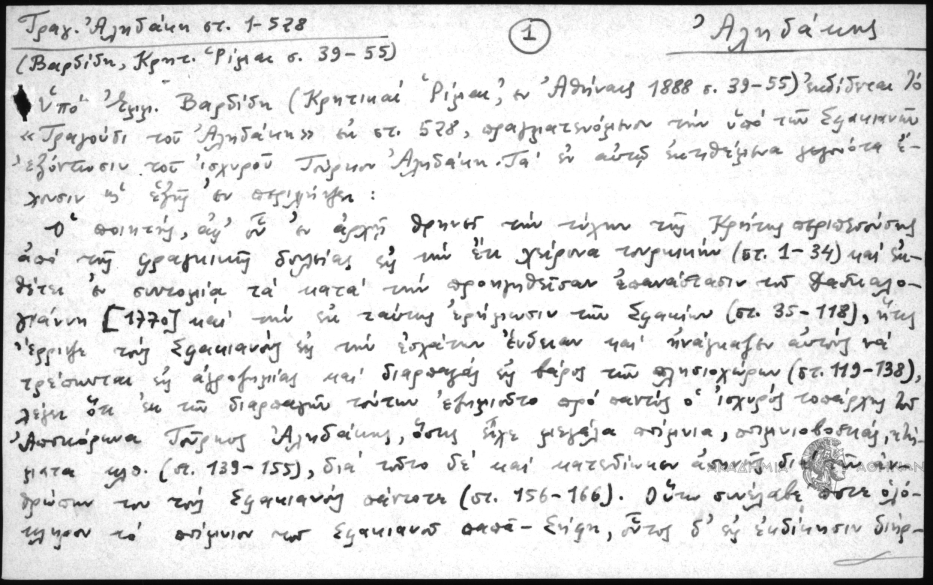 Τραγ. Ἀληδάκη στ. 1-528
① Ἀληδάκης
(Βαρδίδη, Κρητ. Ῥῖμαι σ. 39-55)
Ὑπὸ Ἐμμ. Βαρδίδη (Κρητικαὶ Ῥῖμαι, ἐν Ἀθήναις 1888 σ. 39-55) ἐκδίδεται τὸ
«Τραγούδι τοῦ Ἀληδάκη» ἐκ στ. 528, πραγματευόμενον τὴν ὑπὸ τῶν Σφακιανῶν
ἐξόντωσιν τοῦ ἰσχυροῦ Τούρκου Ἀληδάκη. Τὰ ἐν αὐτῷ ἐκτιθέμενα γεγονότα ἔ-
χουσιν ὡς ἑξῆς ἐν περιλήψει:
Ὁ ποιητής, ἀφ' οὗ ἐν ἀρχῇ θρηνεῖ τὴν τύχην τῆς Κρήτης περιπεσούσης
ἀπὸ τῆς φραγκικῆς δουλείας εἰς τὴν ἔτι χείρονα τουρκικήν (στ. 1-34) καὶ ἐκ-
θέτει ἐν συντομίᾳ τὰ κατὰ τὴν προηγηθεῖσαν ἐπανάστασιν τοῦ Δασκαλο-
γιάννη [1770] καὶ τὴν ἐκ ταύτης ἐρήμωσιν τῶν Σφακίων (στ. 35-118), ἥτις
ἔρριψε τοὺς Σφακιανοὺς εἰς τὴν ἐσχάτην ἔνδειαν καὶ ἠνάγκασεν αὐτοὺς νὰ
τρέπωνται εἰς ἀγροζημίας καὶ διαρπαγὰς εἰς βάρος τῶν πλησιοχώρων (στ. 119-138),
λέγει ὅτι ἐκ τῶν διαρπαγῶν τούτων ἐζημιοῦτο πρὸ παντὸς ὁ ἰσχυρὸς τοπάρχης τοῦ
Ἀποκόρωνα Τοῦρκος Ἀληδάκης, ὅστις εἶχε μεγάλα ποίμνια, ποιμνιοβοσκάς, κτή-
ματα κλπ. (στ. 139-155), διὰ τοῦτο δὲ καὶ κατεδίωκεν ἀπηνῶς διὰ τῶν ἀν-
θρώπων του τοὺς Σφακιανοὺς πάντοτε (στ. 156-166). Οὕτω συνέλαβέ ποτε ὁλό-
κληρον τὸ ποίμνιον τοῦ Σφακιανοῦ παπᾶ-Σήφη, οὗτος δ' εἰς ἐκδίκησιν διήρ-
ΑΚΑΔΗΜΙΑ ΑΘΗΝΩΝ